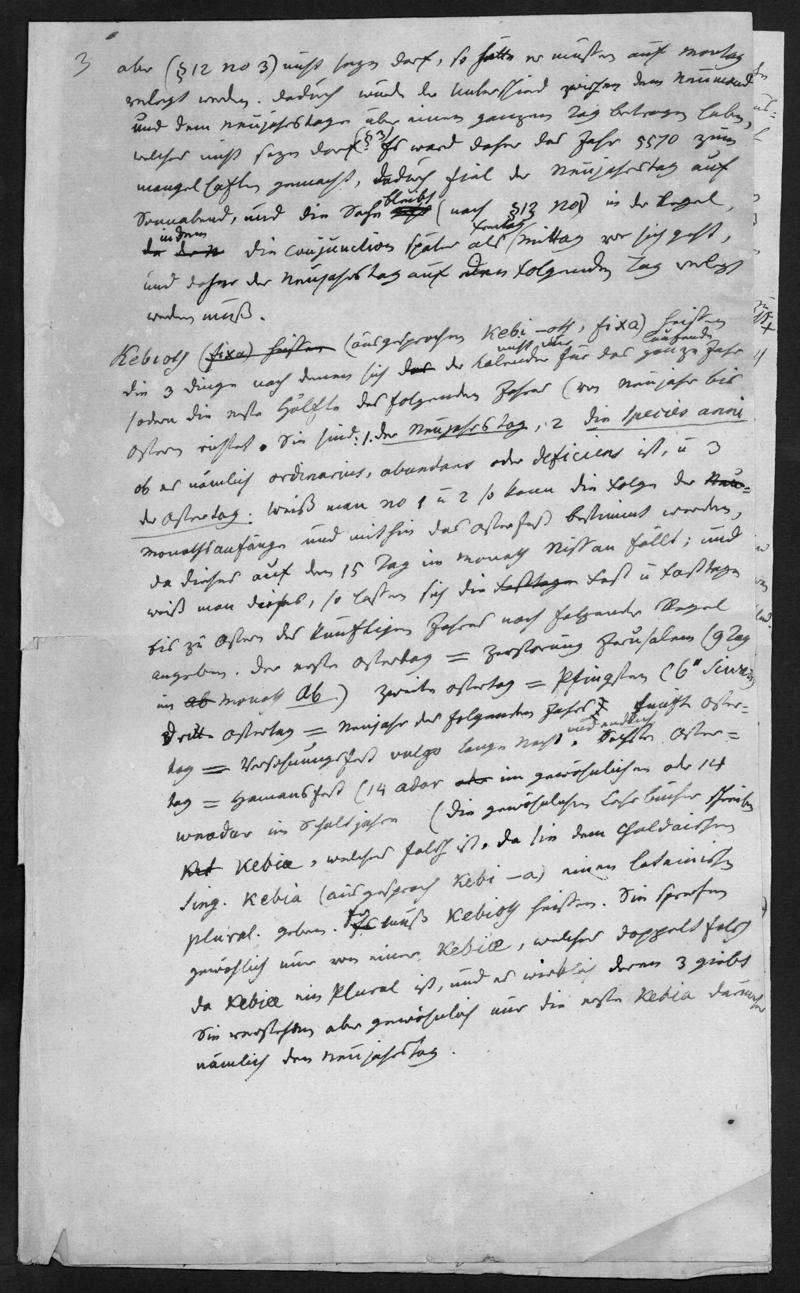 3
aber (§ 12 no 3) nicht seyn darf, so hätte er müssen auf Montag
verlegt werden. dadurch würde der Unterschied zwischen dem Neumond
und dem Neujahrstage über einen ganzen Tag betragen haben,
welches nicht seyn darf (§ 3). Es ward daher das Jahr 5570 zum
mangelhaften gemacht, dadurch fiel der Neujahrstag auf
Sonnabend, und die Sache bleibt (nach § 12 no) in der Regel,
indem die Conjunction später als Freitag Mittag vor sich geht,
und daher der Neujahrstag auf den folgenden Tag verlegt
werden muß.
Kebioth (fixa) heissen (ausgesprochen Kebi-oth, fixa) heissen
die 3 Dinge nach denen sich der Kalender nicht für das ganze laufende Jahr
sondern die erste Hälfte des folgenden Jahres (von Neujahr bis
Ostern richtet. Sie sind: 1. der Neujahrstag, 2 die species anni
ob es nämlich ordinarius, abundans oder deficiens ist, u 3
der Ostertag. Weiß man no 1 u 2 so kann die Folge der Neu=
Monathsanfänge und mithin das Osterfest bestimmt werden,
da dieses auf den 15 Tag im Monath Nissan fällt; und
weiß man dieses, so lassen sich die Festtage Fest u Fasttage
bis zu Ostern des künftigen Jahres nach folgender Regel
angeben. Der erste Ostertag = Zerstörung Jerusalem (9 Tag
im ab Monath Ab.) zweite Ostertag = Pfingsten (6ⁿ Siwan)
Dritte Ostertag = Neujahr des folgenden Jahres fünfte Oster=
tag = Versöhnungsfest vulgo lange Nacht, und endlich Sechste Oster=
tag = Hamansfest (14 adar oder im gewöhnlichen oder 14
weadar im Schaltjahre (die gewöhnlichen Lehrbücher schreiben
Kebiae, welches falsch ist, da sie dem Chaldäischen
Sing. Kebia (ausgesproch Kebi-a) einen lateinischen
plural. geben. Es muß Kebioth heissen. Sie sprechen
gewöhnlich nur von einer Kebiae, welches doppelt falsch
da Kebiae ein Plural ist, und es wirklich deren 3 giebt
Sie verstehen aber gewöhnlich nur die erste Kebia darunter
nämlich den Neujahrstag.